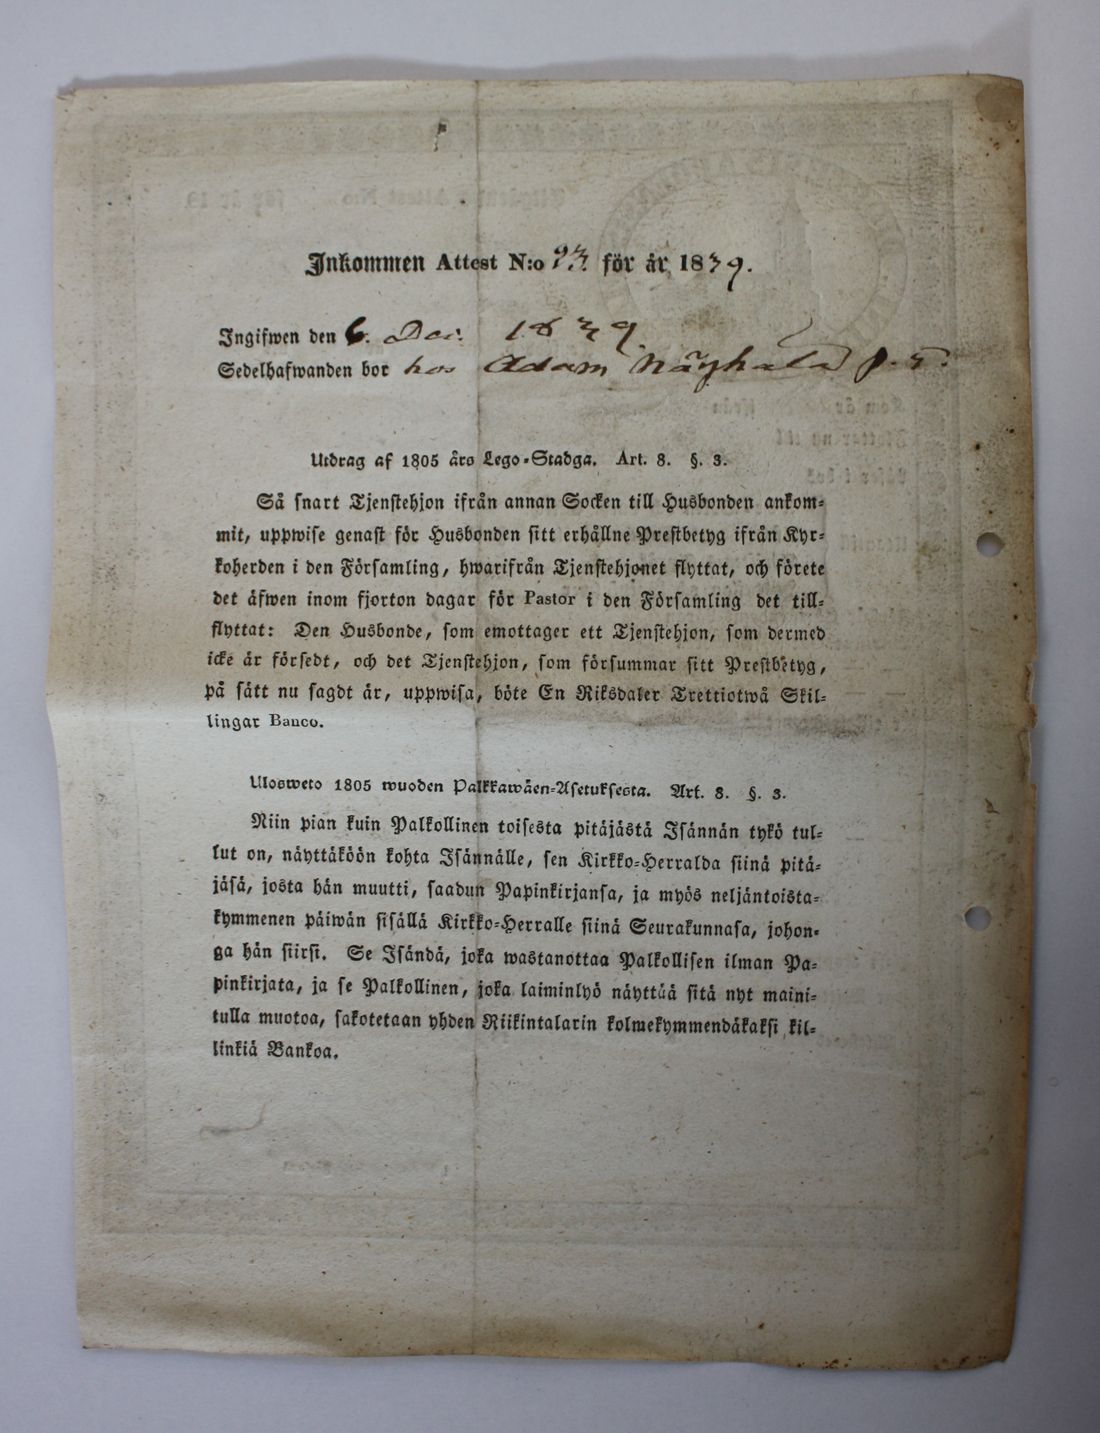 Inkommen Attest N:o 93. för år 1839.
Ingifwen den 6. Dec. 1839.
Sedelhafwanden bor hos Adam
Utdrag af 1805 års Lego-Stadga. Art. 8. §. 3.
Så snart Tjenstehjon ifrån annan Socken till Husbonden ankom-
mit, uppwise genast för Husbonden sitt erhållne Prestbetyg ifrån Kyr-
koherden i den Församling, hwarifrån Tjenstehjonet flyttat, och förete
det äfwen inom fjorton dagar för Pastor i den Församling det till-
flyttat: Den Husbonde, som emottager ett Tjenstehjon, som dermed
icke är försedt, och det Tjenstehjon, som försummar sitt Prestbetyg,
på sätt nu sagdt är, uppwisa, böte En Riksdaler Trettiotwå Skil-
lingar Banco.
Ulosweto 1805 wuoden Palkkawäen-Asetuksesta. Art. 8. §. 3.
Niin pian kuin Palkollinen toisesta pitäjästä Isännän tykö tul-
lut on, näyttäköön kohta Isännälle, sen Kirkko-Herralda siinä pitä-
jäsä, josta hän muutti, saadun Papinkirjansa, ja myös neljäntoista-
kymmenen päiwän sisällä Kirkko-Herralle siinä Seurakunnasa, johon-
ga hän siirsi. Se Isändä, joka wastanottaa Palkollisen ilman Pa-
pinkirjata, ja se Palkollinen, joka laiminlyö näyttää sitä nyt maini-
tulla muotoa, sakotetaan yhden Riikintalarin kolmekymmendäkaksi kil-
linkiä Bankoa.